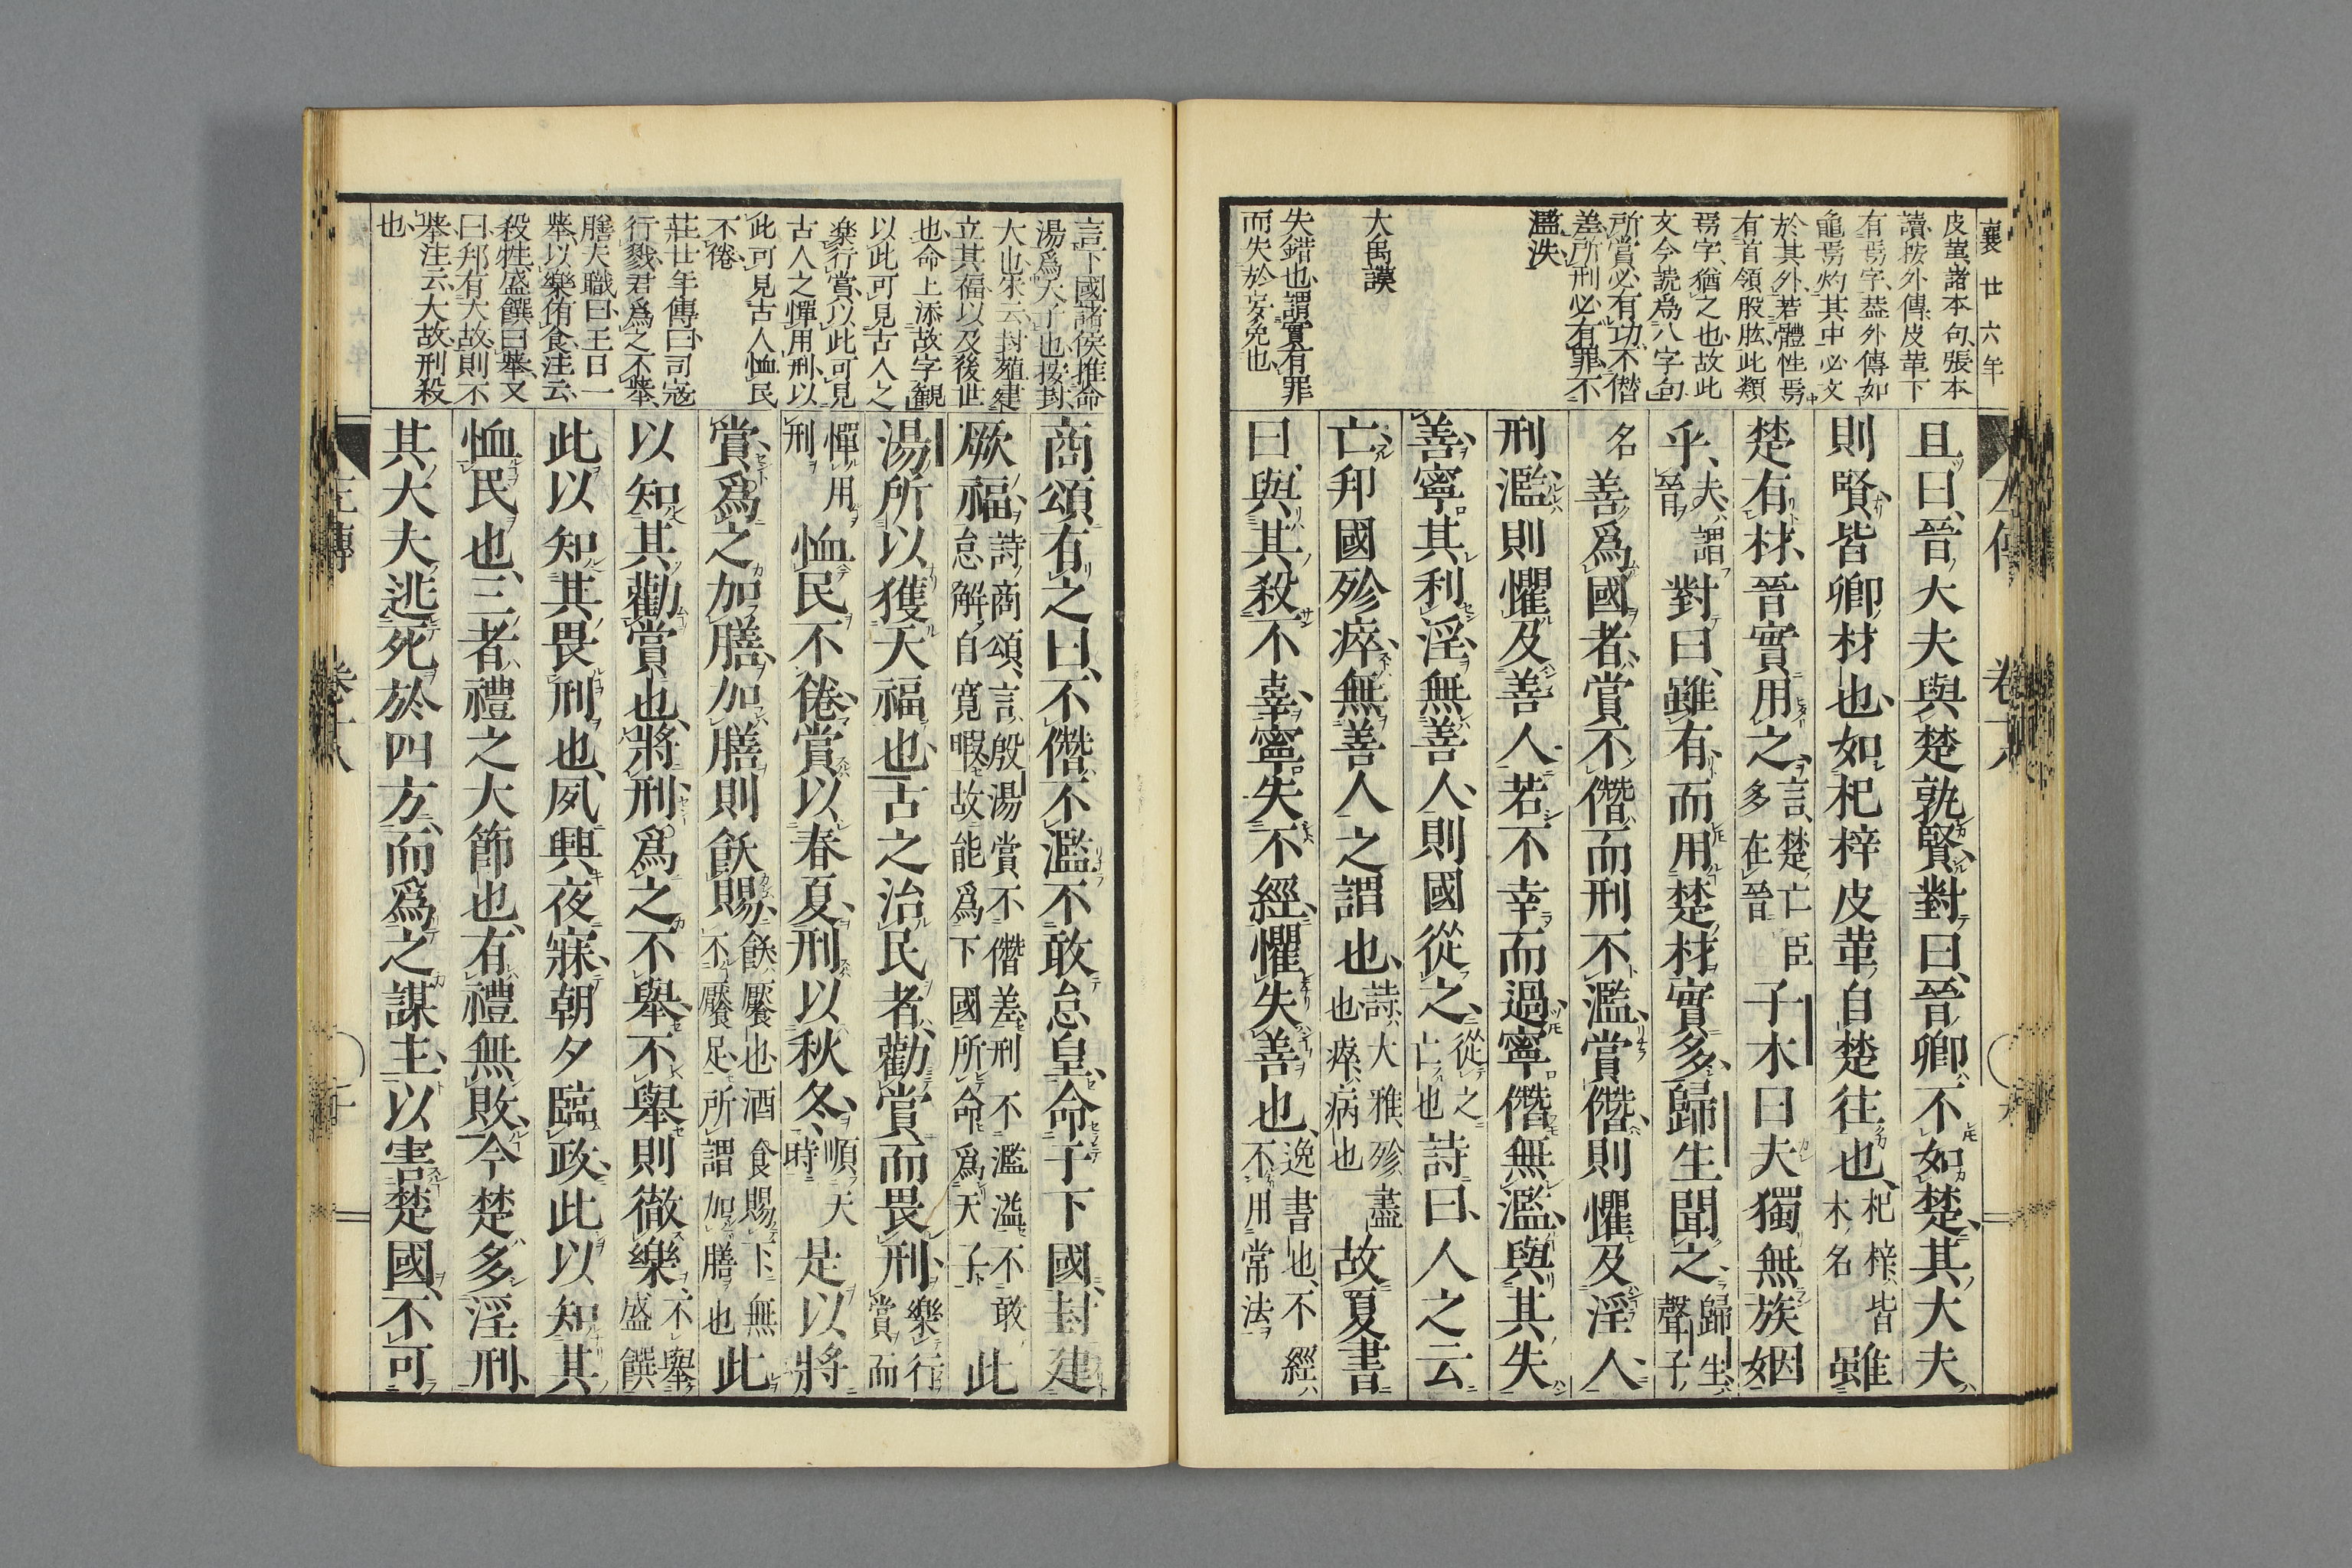 襄廿六年
皮革諸本句張本
讀按外傳皮革下
有焉字蓋外傳如
龜焉灼其中必文
於其外若體性焉
有首領股肱此類
焉字猶之也故此
文今読爲八字句
所賞必有功不僭
差所刑必有罪不
濫泆
大禹謨
失錯也謂實有罪
而失於安免也
且曰晉大夫與楚孰賢對曰晉卿不如楚其大夫
則賢皆卿材也如杞梓皮革自楚往也杞梓皆木名雖
楚有材晉實用之言楚亡臣多在晉子木曰夫獨無族姻
乎夫謂晉對曰雖有而用楚材實多歸生聞之歸生聲子
名善爲國者賞不僭而刑不濫賞僭則懼及淫人
刑濫則懼及善人若不幸而過寧僭無濫與其失
善寧其利淫無善人則國從之從之亡也詩曰人之云
亡邦國殄瘁無善人之謂也詩大雅殄盡也瘁病也故夏書
曰與其殺不辜寧失不經懼失善也逸書也不經不用常法
言下國諸侯推命
湯爲天子也按封
大也朱云封殖建
立其福以及後世
也命上添故字観
以此可見古人之
楽行賞以此可見
古人之憚用刑以
此可見古人恤民
不倦
莊廿年傳曰司寇
行戮君爲之不舉
膳夫職曰王日一
舉以樂侑食注云
殺牲盛饌曰舉又
曰邦有大故則不
舉注云大故刑殺
也
商頌有之曰不僭不濫不敢怠皇命于下國封建
厥福詩商頌言殷湯賞不僭差刑不濫溢不敢怠解自寬暇故能爲下國所命爲天子此
湯所以獲天福也古之治民者勸賞而畏刑樂行賞而
憚用刑恤民不倦賞以春夏刑以秋冬順天時是以將
賞爲之加膳加膳則飫賜飫饜也酒食賜下無不饜足所謂加膳也此
以知其勸賞也將刑爲之不舉不舉則徹樂不舉盛饌
此以知其畏刑也夙興夜寐朝夕臨政此以知其
恤民也三者禮之大節也有禮無敗今楚多淫刑
其大夫逃死於四方而爲之謀主以害楚國不可
左傳 卷十八